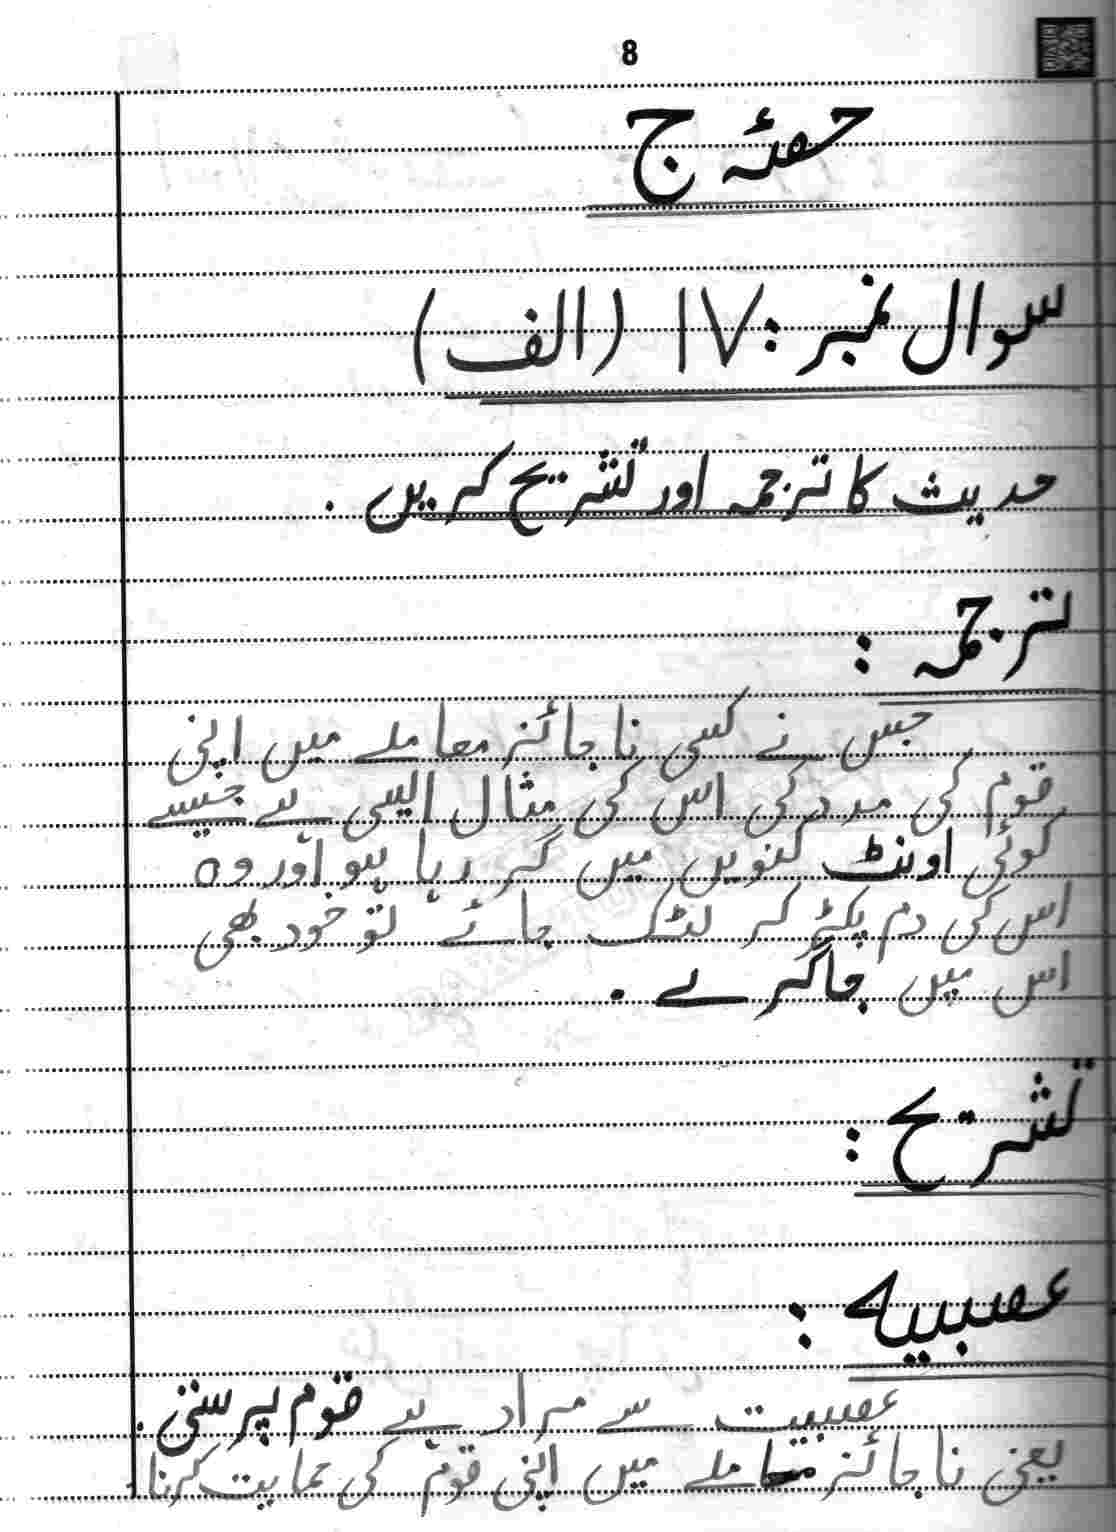 8
حصّہ ج
سوال نمبر: ۱۷ (الف)
حدیث کا ترجمہ اور تشریح کریں.
ترجمہ:
جس نے کسی ناجائز معاملے میں اپنی
قوم کی مدد کی اس کی مثال ایسی ہے جیسے
کوئی اونٹ کنویں میں گر رہا ہو اور وہ
اس کی دم پکڑ کر لٹک جائے تو خود بھی
اس میں جا گرے.
تشریح:
عصبیہ:
عصبیت سے مراد ہے قوم پرستی.
یعنی ناجائز معاملے میں اپنی قوم کی حمایت کرنا